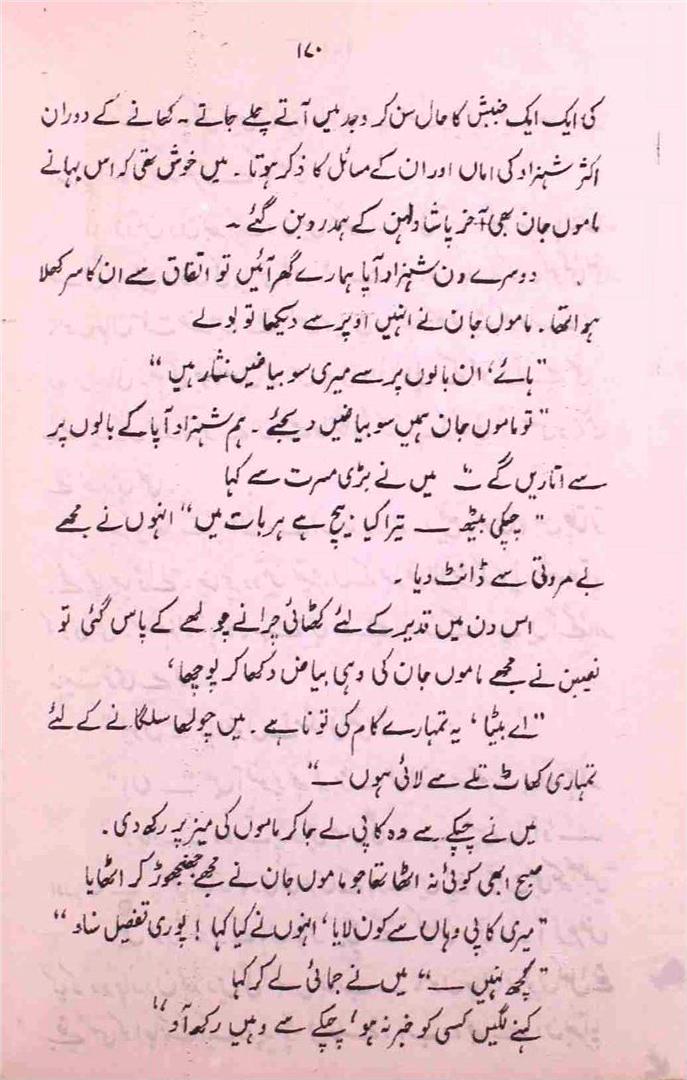 ۱۷۰
کی ایک ایک جنبش کا حال سن کر وجد میں آتے چلے جاتے ۔ کھانے کے دوران
اکثر شہزاد کی اماں اور ان کے مسائل کا ذکر ہوتا ۔ میں خوش تھی کہ اس بہانے
ماموں جان بھی آخر پاشا دلہن کے ہمدرد بن گئے ۔
دوسرے دن شہزاد آپا ہمارے گھر آئیں تو اتفاق سے ان کا سر کھلا
ہوا تھا ۔ ماموں جان نے انہیں اوپر سے دیکھا تو بولے
"ہائے، ان بالوں پر سے میری سو بیاضیں نثار ہیں"
"تو ماموں جان ہمیں سو بیاضیں دیجئے ۔ ہم شہزاد آپا کے بالوں پر
سے اتاریں گے" میں نے بڑی مسرت سے کہا
"چپکی بیٹھ ــ تیرا کیا بیچ ہے ہر بات میں" انہوں نے مجھے
بے مروتی سے ڈانٹ دیا ۔
اس دن میں قدیر کے لئے کھٹائی چرانے چولھے کے پاس گئی تو
نعیبن نے مجھے ماموں جان کی وہی بیاض دکھا کر پوچھا،
"اے بیٹا، یہ تمہارے کام کی تو نا ہے ۔ میں چولھا سلگانے کے لئے
تمہاری کھاٹ تلے سے لائی ہوں ــ"
میں نے چپکے سے وہ کاپی لے جا کر ماموں کی میز پر رکھ دی ۔
صبح ابھی کوئی نہ اٹھا تھا جو ماموں جان نے مجھے جھنجھوڑ کر اٹھایا
"میری کاپی وہاں سے کون لایا، انہوں نے کیا کہا ! پوری تفصیل سناو"
"کچھ نہیں ــ" میں نے جمائی لے کر کہا
کہنے لگیں کسی کو خبر نہ ہو، چپکے سے وہیں رکھ آو"